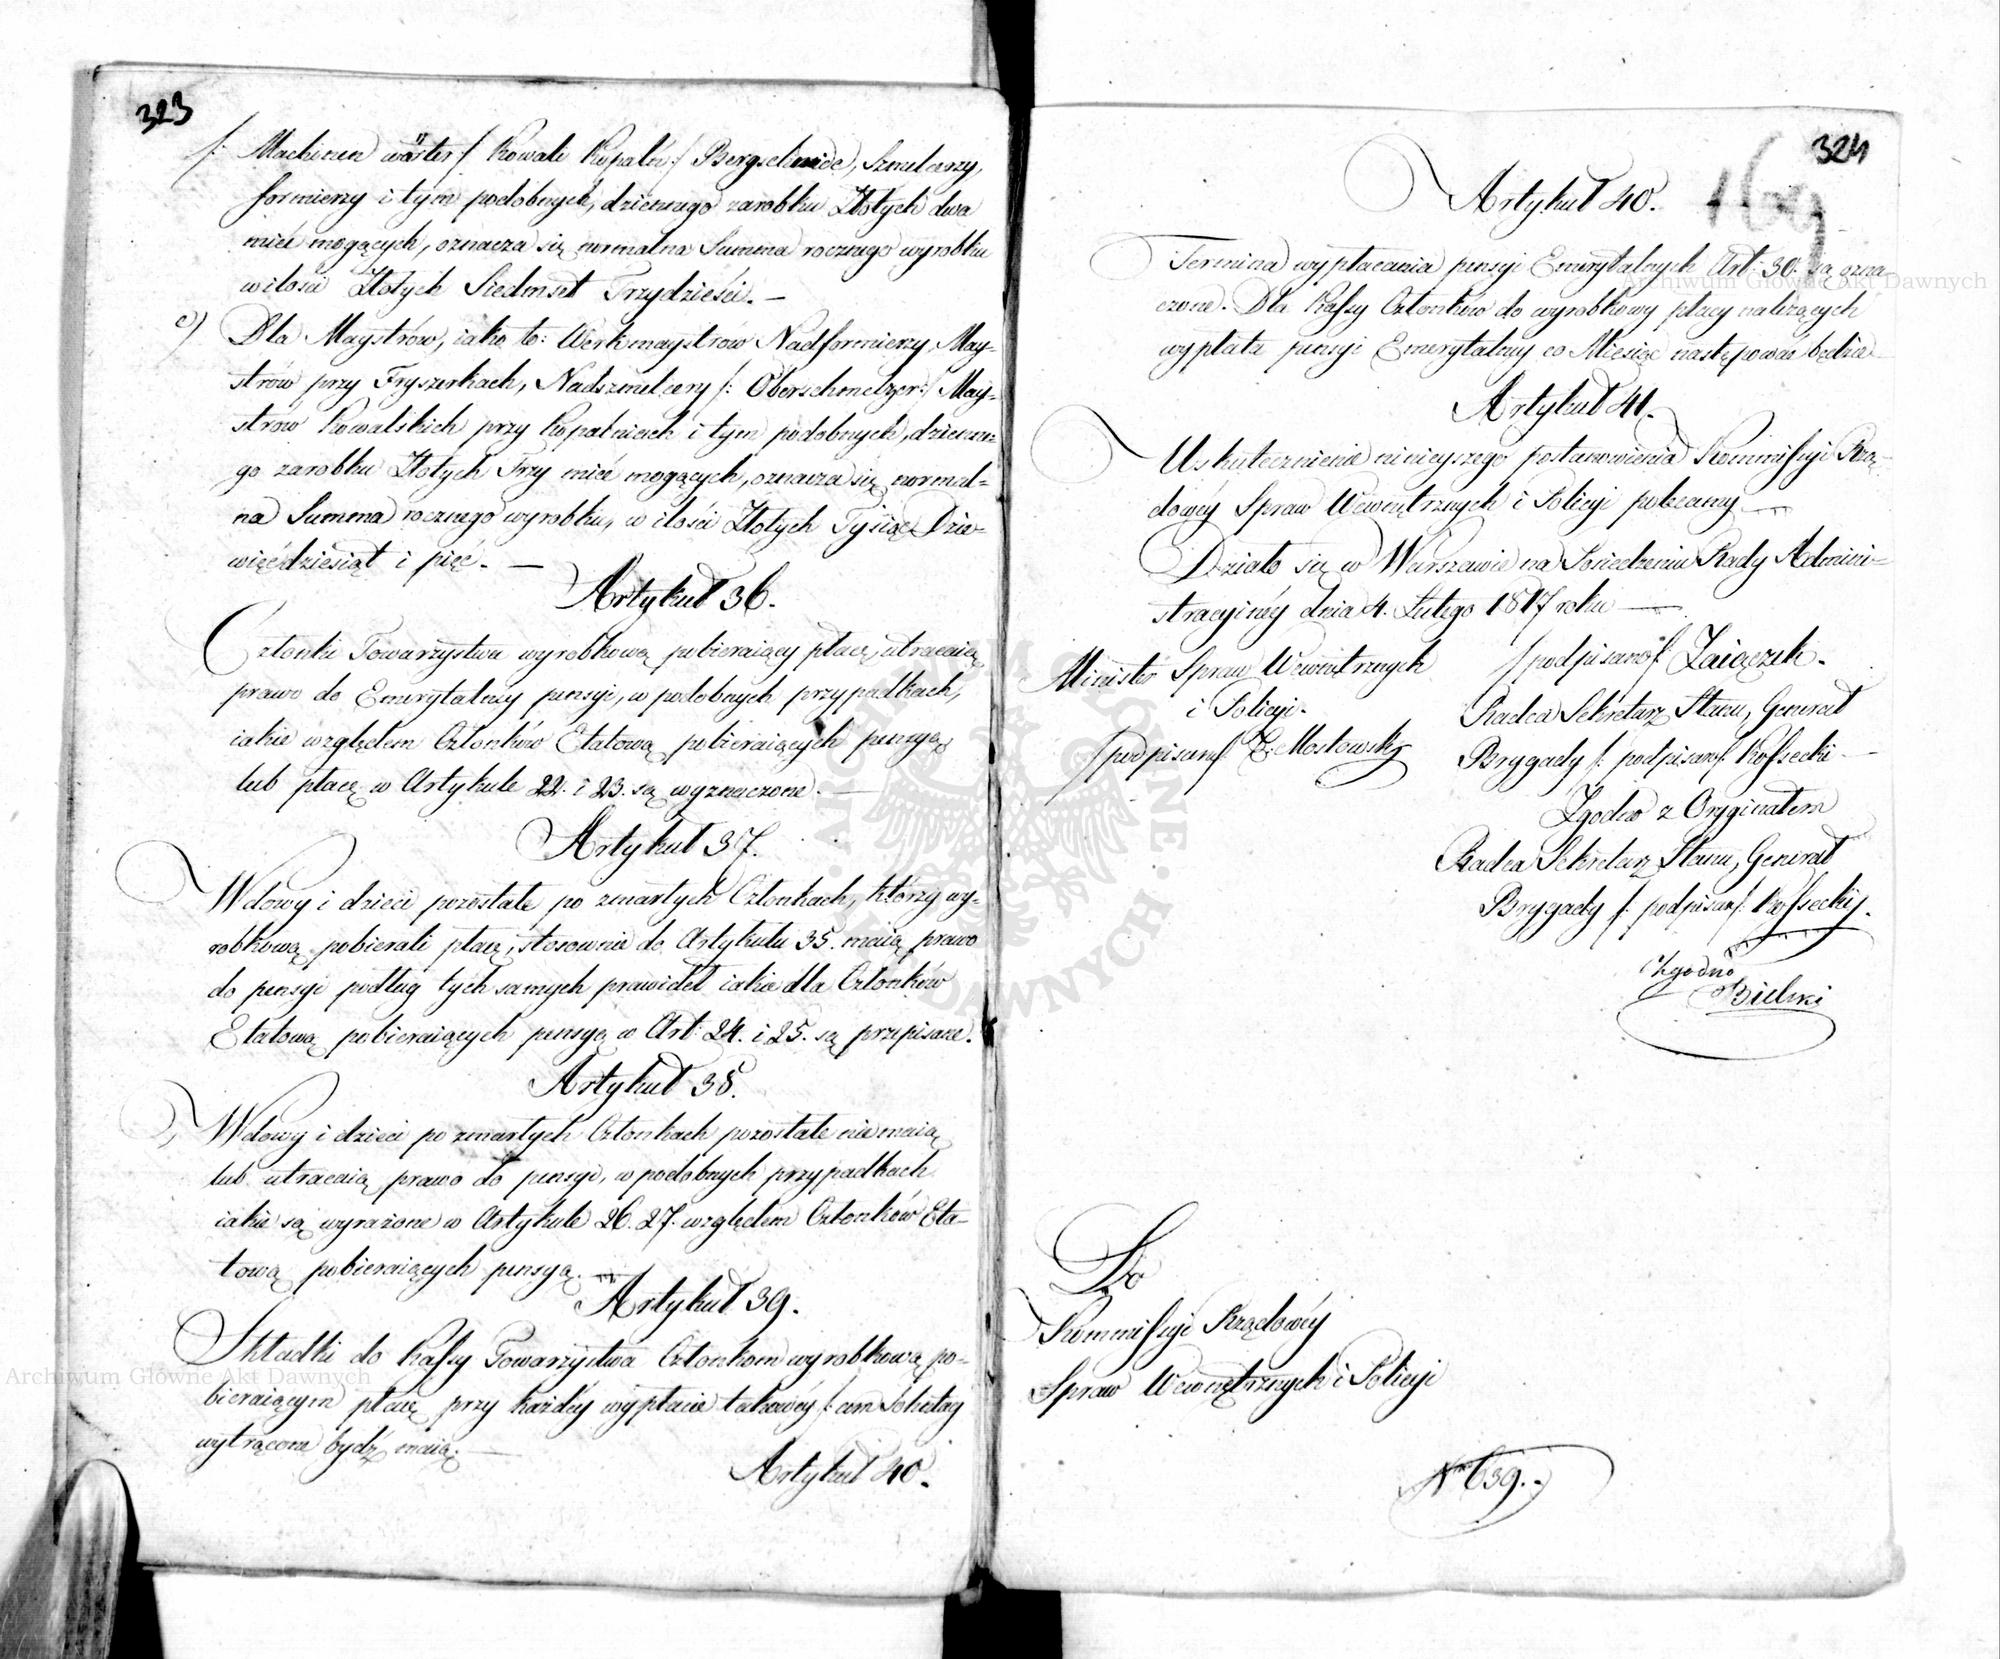 323
/: Machinen wärter :/ Kowali Kopalń /: Bergschmide, Szmelcarzy,
formierzy i tym podobnych, dziennego zarobku Złotych dwa
mieć mogących, oznacza się normalna Summa rocznego wyrobku
w ilości Złotych Siedmset Trzydzieści. —
c) Dla Maystrów, iako to: Werkmaystrów Nadformierzy, May-
strów przy Fryszerkach, Nadszmelcerzy /: Oberschmelzer :/ May-
strów Kowalskich przy Kopalniach i tym podobnych, dzienne-
go zarobku Złotych Trzy mieć mogących, oznacza się normal-
na Summa rocznego wyrobku, w ilości Złotych Tysiąc Dzie-
więćdziesiąt i pięć. —
Artykuł 36.
Członki Towarzystwa wyrobkową pobieraiący płacę, utracaią
prawo do Emerytalney pensyi, w podobnych przypadkach,
iakie względem Członków Etatową pobieraiących pensyą
lub płacę w Artykule 22. i 23. są wyznaczone. —
Artykuł 37.
Wdowy i dzieci pozostałe po zmarłych Członkach, którzy wy-
robkową pobierali płacę, stosownie do Artykułu 35. maią prawo
do pensyi podług tych samych prawideł iakie dla Członków
Etatową pobieraiących pensyą w Art: 24. i 25. są przepisane.
Artykuł 38.
Wdowy i dzieci po zmarłych Członkach pozostałe nie maią
lub utracaią prawo do pensyi, w podobnych przypadkach
iakie są wyrażone w Artykule 26. 27. względem Członków Eta-
tową pobieraiących pensyą.
Artykuł 39.
Składki do Kassy Towarzystwa Członkom wyrobkową po-
bieraiącym płacę przy każdéy wypłacie takowéy /: am Lohntag
wytrącone bydź maią. —
Artykuł 40.
324
169
Artykuł 40.
Termina wypłacania pensyi Emerytalnych Art: 30. są ozna-
czone. Dla Kassy Członków do wyrobkowy płacy należących
wypłata pensyi Emerytalny co Miesiąc następować będzie
Artykuł 41.
Uskutecznienie ninieyszego postanowienia Kommissyi Rzą-
dowéy Spraw Wewnętrznych i Policyi polecamy —
Działo się w Warszawie na Posiedzeniu Rady Admini-
stracyinéy dnia 4. Lutego 1817 roku —
Minister Spraw Wewnętrznych
i Policyi.
/podpisano/ T. Mostowski
/podpisano/: Zaiączek.
Radca Sekretarz Stanu, Generał
Brygady /: podpisano/: Kossecki —
Zgodno z Oryginałem
Radca Sekretarz Stanu, Generał
Brygady /: podpisano/: Kossecki.
Zgodno
Bielski
Do
Kommissyi Rządowéy
Spraw Wewnętrznych i Policyi
No 639.
Archiwum Główne Akt Dawnych
Archiwum Główne Akt Dawnych
ARCHIWUM GŁÓWNE AKT DAWNYCH